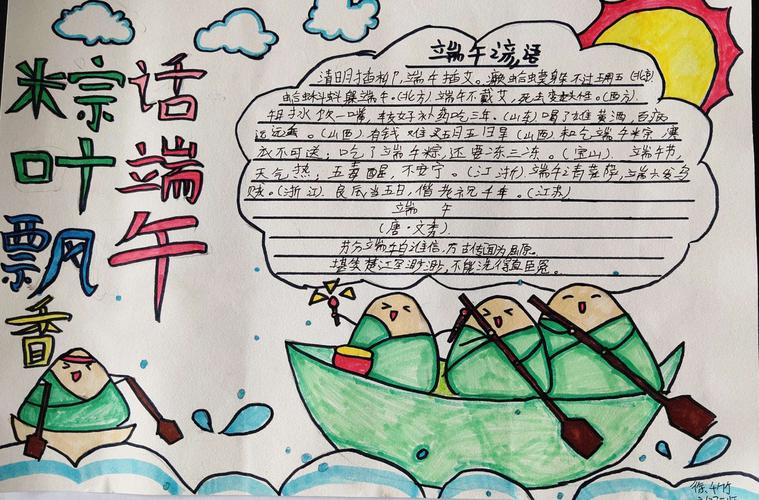 粽叶飘香
话端午
端午谚语
清明插柳,端午插艾。癞蛤蟆躲不过五月五(北京)
蛤蟆蝌蚪躲端午。(北方)端午不戴艾,死去变妖怪。(西方)
水饮一嘴,较好补药吃三年。(山东)喝了雄黄酒,百病
远远丢。(山西)有钱难买五月五日旱(山西)吃端午粽,寒
衣不可送;吃了端午粽,还要冻三冻。(宝山)端午节,
天气热;五毒醒,不安宁。(江浙)端午请菩萨,端六发乌
贼。(浙江)良辰当五日,偕老祝千年。(江苏)
端 午
(唐·文秀)
节分端午自谁信,万古传闻为屈原。
堪笑楚江空渺渺,不能洗得直臣冤。